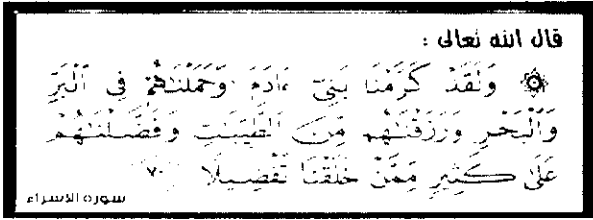 قال الله تعالى :
۞ وَلَقَدْ كَرَّمْنَا بَنِىٓ ءَادَمَ وَحَمَلْنَـٰهُمْ فِى ٱلْبَرِّ
وَٱلْبَحْرِ وَرَزَقْنَـٰهُم مِّنَ ٱلطَّيِّبَـٰتِ وَفَضَّلْنَـٰهُمْ
عَلَىٰ كَثِيرٍ مِّمَّنْ خَلَقْنَا تَفْضِيلًا ٧٠
سورة الاسراء